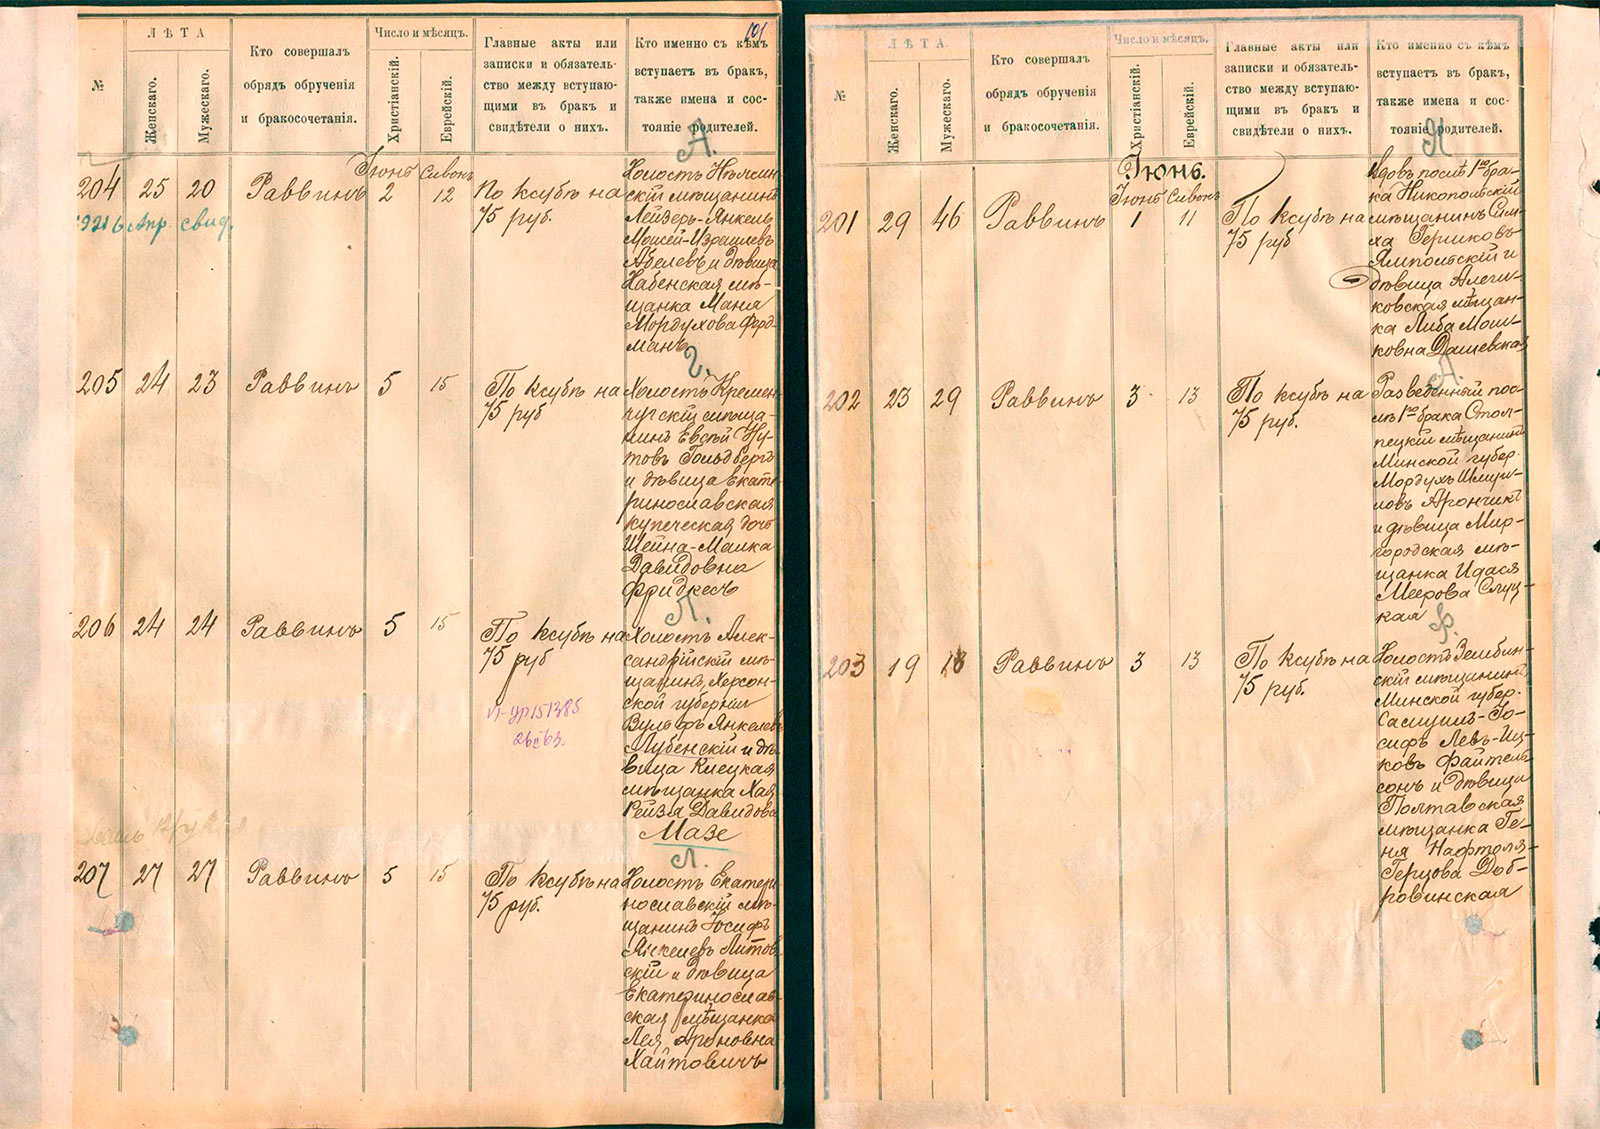 101
№
ЛѢТА
Женскаго.
Мужескаго.
Кто совершалъ
обрядъ обрученія
и бракосочетанія.
Число и мѣсяцъ.
Христіанскій.
Еврейскій.
Главные акты или
записки и обязатель-
ство между вступаю-
щими въ бракъ и
свидѣтели о нихъ.
Кто именно съ кѣмъ
вступаетъ въ бракъ,
также имена и сос-
тояніе родителей.
А.
Іюнь Сивонъ
204 25 20 Раввинъ 2 12
По ксубѣ на
75 руб.
Апр. свид.
Холостъ
скій мѣщанинъ
Лейзеръ-Янкель
Мовшей-Израилевъ
Абелевъ и дѣвица
Хабенская мѣ-
щанка Маня
Мордухова Ферд-
манъ
Г.
205 24 23 Раввинъ 5 15
По ксубѣ на
75 руб
Холостъ Кремен-
чугскій мѣща-
нинъ Евсѣй Ну-
товъ Гольдбергъ
и дѣвица Екате-
ринославская
купеческая дочь
Шейна-Малка
Давидовна
Фридкесъ
Л.
206 24 24 Раввинъ 5 15
По ксубѣ на
75 руб
Холостъ Алек-
сандрійскій мѣ-
щанинъ, Херсон-
ской губерніи
Вульфъ Янкелевъ
Лубенскій и дѣ-
вица Клецкая
мѣщанка Хая
Рейзя Давидова
Мазе
Л.
207 27 27 Раввинъ 5 15
По ксубѣ на
75 руб.
Холостъ Екатери-
нославскій мѣ-
щанинъ Іосифъ
Янкелевъ Литов-
скій и дѣвица
Екатеринослав-
ская мѣщанка
Лея Ароновна
Хайтовичъ
№
ЛѢТА.
Женскаго.
Мужескаго.
Кто совершалъ
обрядъ обрученія
и бракосочетанія.
Число и мѣсяцъ.
Христіанскій.
Еврейскій.
Главные акты или
записки и обязатель-
ство между вступаю-
щими въ бракъ и
свидѣтели о нихъ.
Кто именно съ кѣмъ
вступаетъ въ бракъ,
также имена и сос-
тояніе родителей.
Я
Іюнь.
Іюнь Сивонъ
201 29 46 Раввинъ 1 11
По ксубѣ на
75 руб
Вдовъ послѣ 1го бра-
ка Никопольскій
мѣщанинъ Сим-
ха Гершковъ
Ямпольскій и
дѣвица Алеш-
ковская мѣщан-
ка Либа Мош-
ковна Дашевская
А.
202 23 29 Раввинъ 3 13
По ксубѣ на
75 руб.
Разведенный пос-
лѣ 1го брака Стол-
пецкій мѣщанинъ
Минской губер.
Мордухъ Шмуи-
ловъ Арончикъ
и дѣвица Мир-
городская мѣ-
щанка Идася
Меерова Слуц-
кая
Ф.
203 19 18 Раввинъ 3 13
По ксубѣ на
75 руб.
Холостъ Зембин-
скій мѣщанинъ
Минской губер.
Іо-
сифъ Левъ-Иц-
ковъ Файтель-
сонъ и дѣвица
Полтавская
мѣщанка Ге-
ня Нафтоля-
Герцова Доб-
ровинская